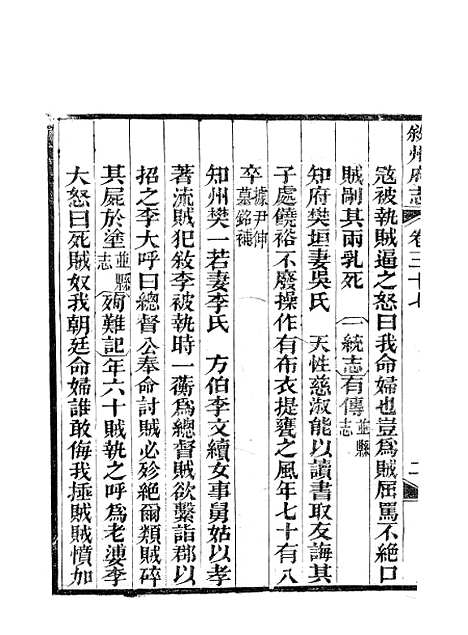 敘州府志 卷三十七 二
寇被執賊逼之怒曰我命婦也豈爲賊屈罵不絕口
賊剮其兩乳死 一統志有傳 並縣志
知府樊垣妻吳氏 天性慈淑能以讀書取友誨其
子處饒裕不廢操作有布衣提甕之風年七十有八
卒 據尹伸墓銘補
知州樊一若妻李氏 方伯李文續女事舅姑以孝
著流賊犯敘李被執時一蘅爲總督賊欲繫詣郡以
招之李大呼曰總督公奉命討賊必殄絕爾類賊碎
其屍於塗 並縣志 殉難記年六十賊執之呼爲老婆李
大怒曰死賊奴我朝廷命婦誰敢侮我捶賊賊憤加